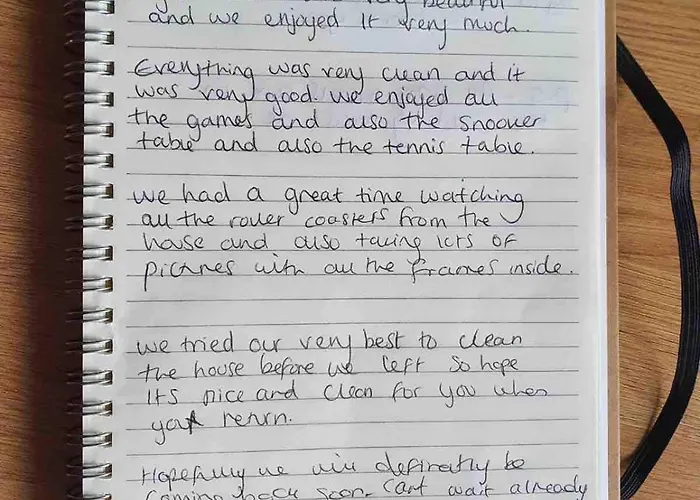 very beautiful
and we enjoyed it very much.
Everything was very clean and it
was very good. we enjoyed all
the games and also the snooker
table and also the tennis table.
we had a great time watching
all the roller coasters from the
house and also taking lots of
pictures with all the frames inside.
we tried our very best to clean
the house before we left so hope
its nice and clean for you when
you return.
Hopefully we will definatly be
coming back soon. Cant wait already